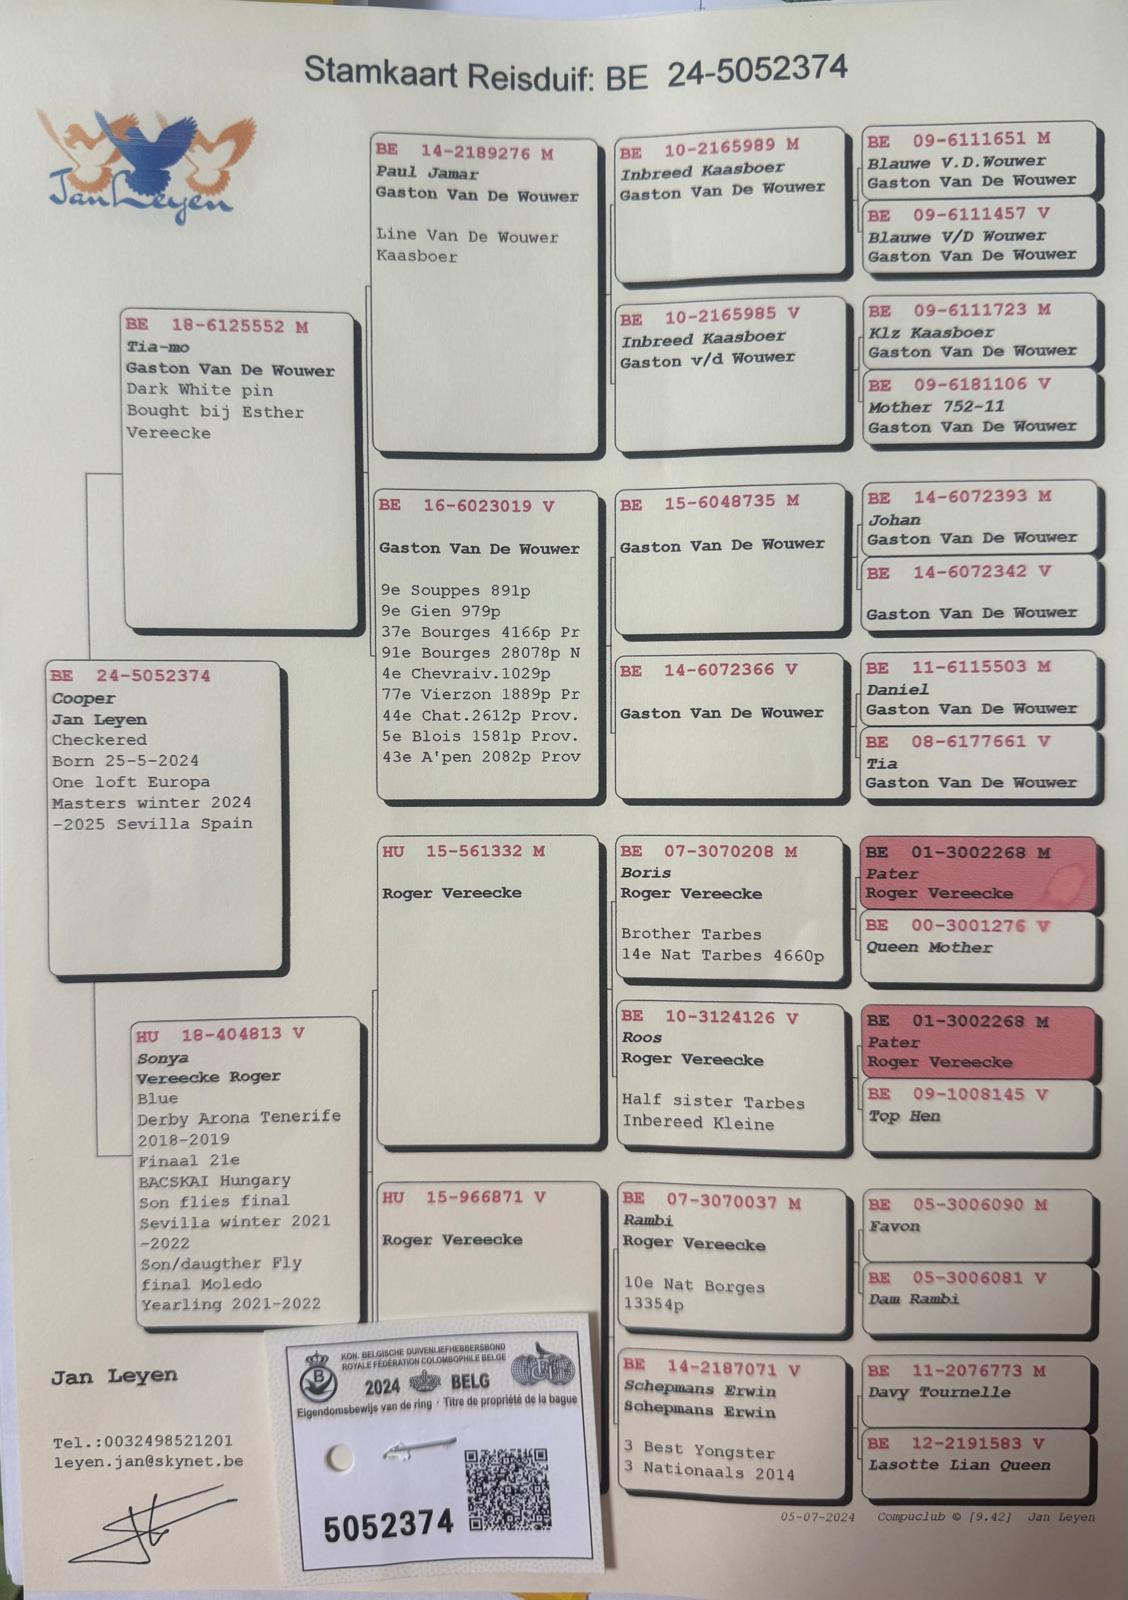 Stamkaart Reisduif: BE 24-5052374
Jan Leyen
BE 24-5052374
Cooper
Jan Leyen
Checkered
Born 25-5-2024
One loft Europa
Masters winter 2024
-2025 Sevilla Spain
BE 18-6125552 M
Tia-mo
Gaston Van De Wouwer
Dark White pin
Bought bij Esther
Vereecke
HU 18-404813 V
Sonya
Vereecke Roger
Blue
Derby Arona Tenerife
2018-2019
Finaal 21e
BACSKAI Hungary
Son flies final
Sevilla winter 2021
-2022
Son/daugther Fly
final Moledo
Yearling 2021-2022
BE 14-2189276 M
Paul Jamar
Gaston Van De Wouwer
Line Van De Wouwer
Kaasboer
BE 16-6023019 V
Gaston Van De Wouwer
9e Souppes 891p
9e Gien 979p
37e Bourges 4166p Pr
91e Bourges 28078p N
4e Chevraiv.1029p
77e Vierzon 1889p Pr
44e Chat.2612p Prov.
5e Blois 1581p Prov.
43e A'pen 2082p Prov
HU 15-561332 M
Roger Vereecke
HU 15-966871 V
Roger Vereecke
BE 10-2165989 M
Inbreed Kaasboer
Gaston Van De Wouwer
BE 10-2165985 V
Inbreed Kaasboer
Gaston v/d Wouwer
BE 15-6048735 M
Gaston Van De Wouwer
BE 14-6072366 V
Gaston Van De Wouwer
BE 07-3070208 M
Boris
Roger Vereecke
Brother Tarbes
14e Nat Tarbes 4660p
BE 10-3124126 V
Roos
Roger Vereecke
Half sister Tarbes
Inbereed Kleine
BE 07-3070037 M
Rambi
Roger Vereecke
10e Nat Borges
13354p
BE 14-2187071 V
Schepmans Erwin
Schepmans Erwin
3 Best Yongster
3 Nationaals 2014
BE 09-6111651 M
Blauwe V.D.Wouwer
Gaston Van De Wouwer
BE 09-6111457 V
Blauwe V/D Wouwer
Gaston Van De Wouwer
BE 09-6111723 M
Klz Kaasboer
Gaston Van De Wouwer
BE 09-6181106 V
Mother 752-11
Gaston Van De Wouwer
BE 14-6072393 M
Johan
Gaston Van De Wouwer
BE 14-6072342 V
Gaston Van De Wouwer
BE 11-6115503 M
Daniel
Gaston Van De Wouwer
BE 08-6177661 V
Tia
Gaston Van De Wouwer
BE 01-3002268 M
Pater
Roger Vereecke
BE 00-3001276 V
Queen Mother
BE 01-3002268 M
Pater
Roger Vereecke
BE 09-1008145 V
Top Hen
BE 05-3006090 M
Favon
BE 05-3006081 V
Dam Rambi
BE 11-2076773 M
Davy Tournelle
BE 12-2191583 V
Lasotte Lian Queen
Jan Leyen
Tel.:0032498521201
leyen.jan@skynet.be
KON. BELGISCHE DUIVENLIEFHEBBERSBOND
ROYALE FÉDÉRATION COLOMBOPHILE BELGE
2024 BELG
Eigendomsbewijs van de ring · Titre de propriété de la bague
5052374
05-07-2024 Compuclub © [9.42] Jan Leyen